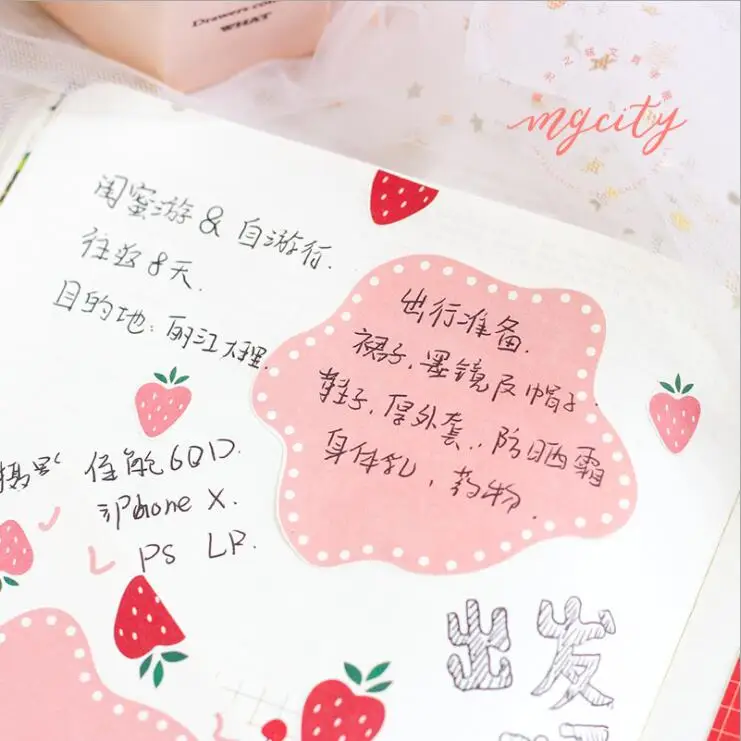 Drawers con
WHAT
mgcity
闺蜜游 & 自游行.
往返8天.
目的地: 丽江大理.
出行准备.
裙子, 墨镜及帽子.
鞋子, 厚外套, 防晒霜
身体乳, 药物.
佳能60D.
iPhone X.
PS LR.
出发